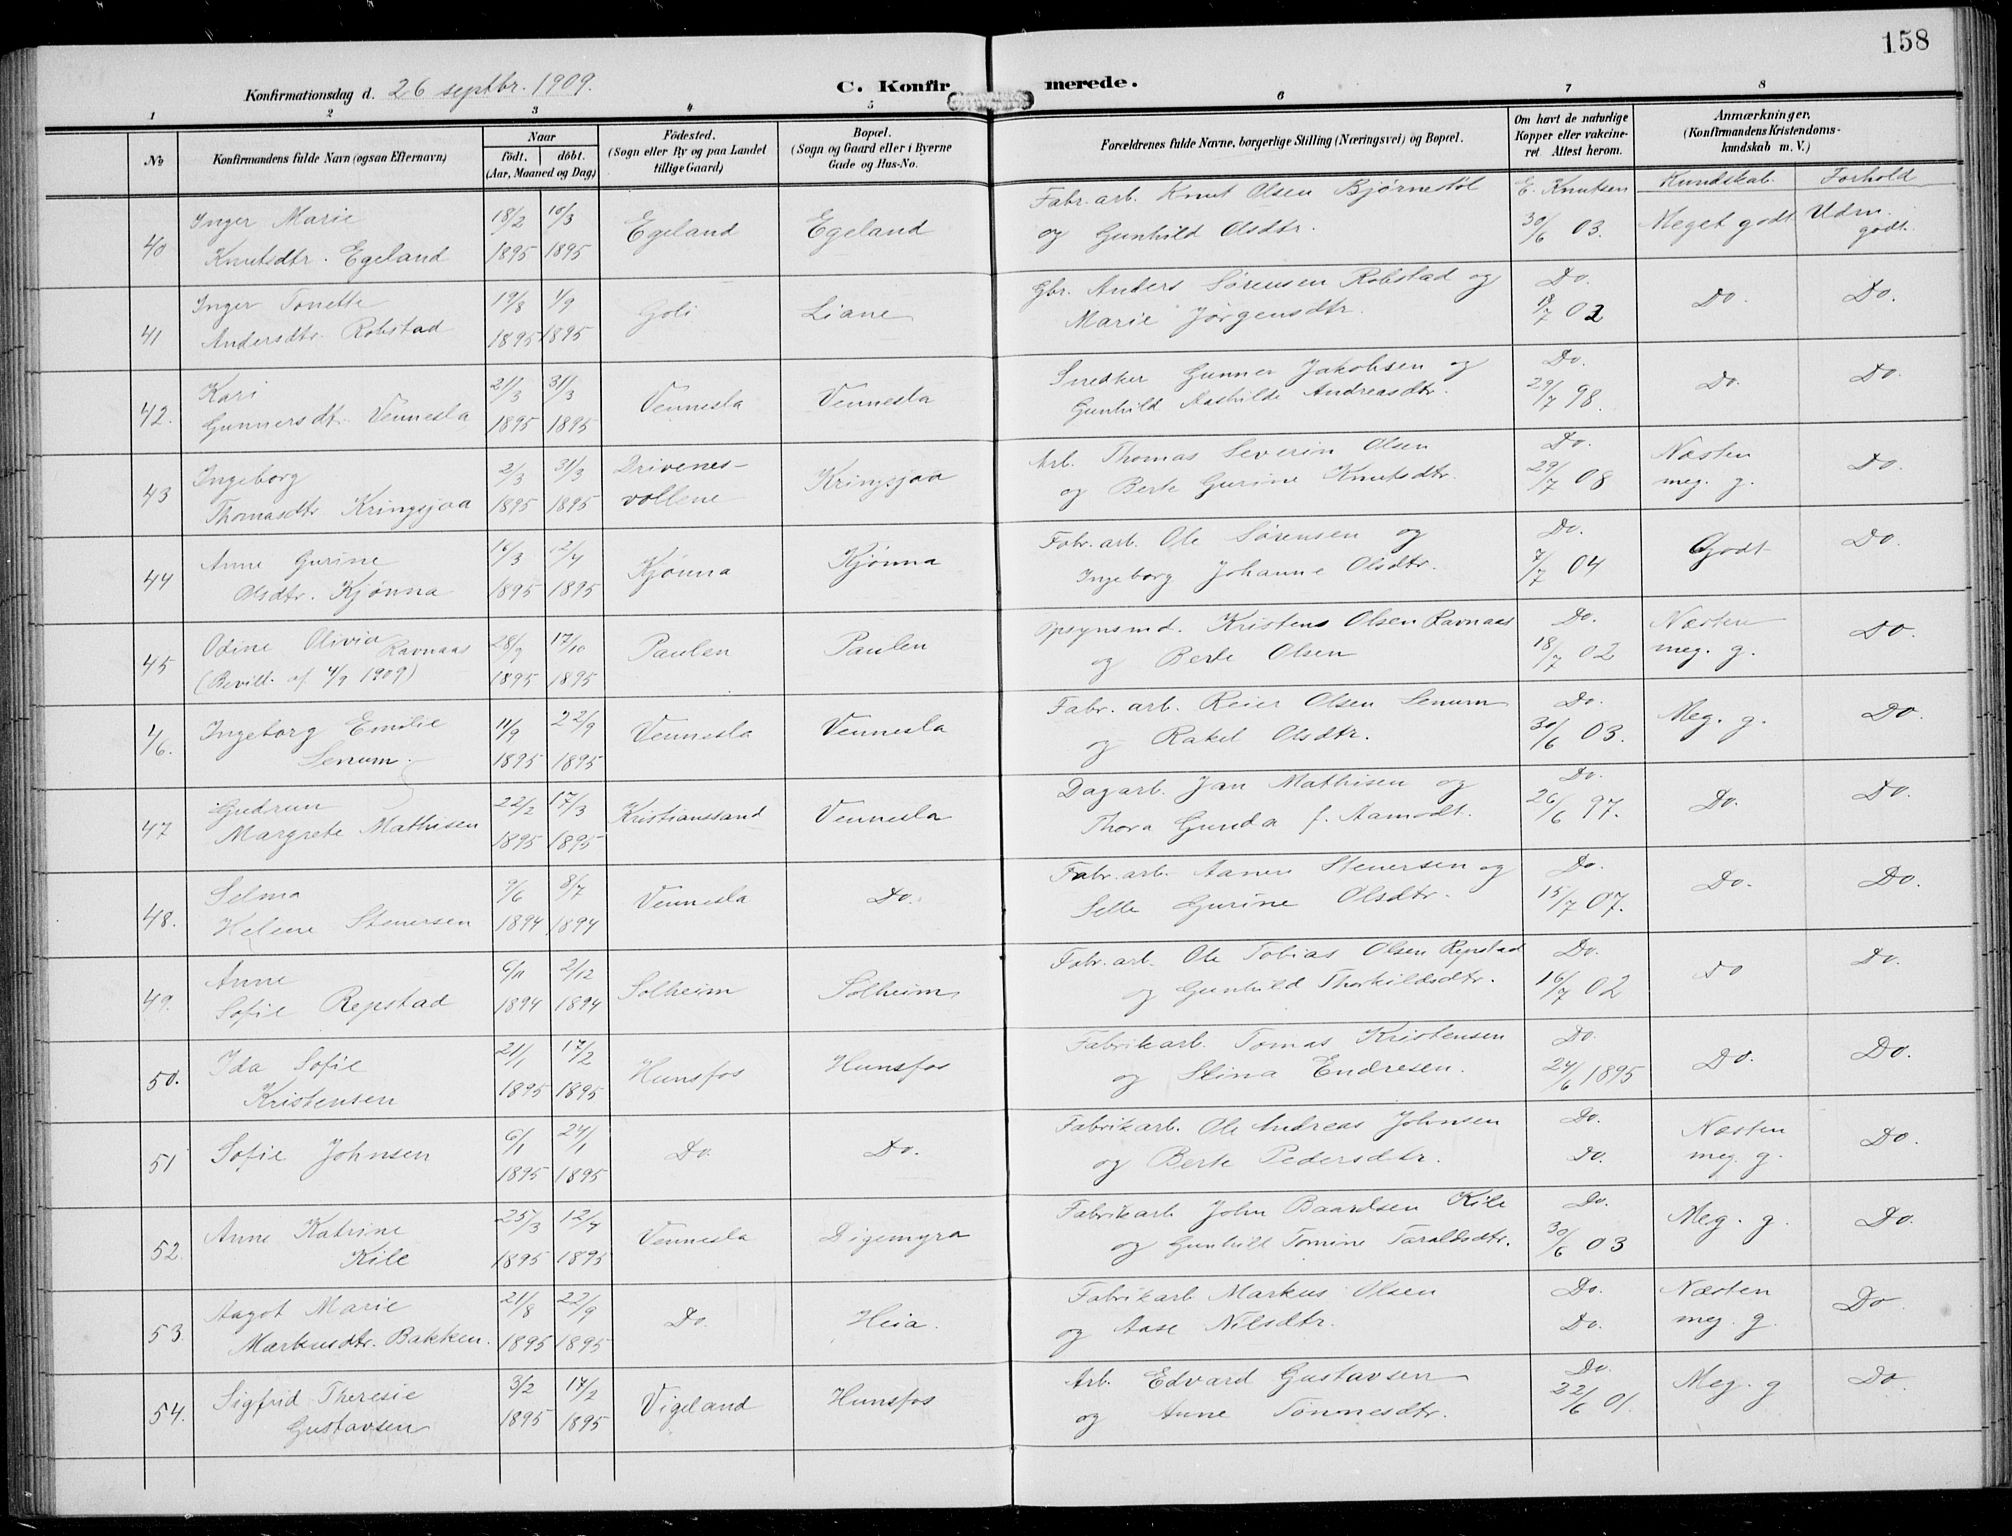 158
Konfirmationsdag d. 26 septbr. 1909.
C. Konfirmerede.
1 2 3 4 5 6 7 8
No
Konfirmandens fulde Navn (ogsaa Efternavn)
Naar
født. døbt.
(Aar, Maaned og Dag)
Fødested.
(Sogn eller By og paa Landet
tillige Gaard)
Bopæl.
(Sogn og Gaard eller i Byerne
Gade og Hus-No.
Forældrenes fulde Navne, borgerlige Stilling (Næringsvei) og Bopæl.
Om havt de naturlige
Kopper eller vakcine-
ret Attest herom.
Anmærkninger,
(Konfirmandens Kristendoms-
kundskab m. V.)
Kundskab. Forhold
Inger Marie 18/2 10/3 Egeland Egeland Fabr. arb. Knut Olsen Bjørnestøl E. Knutsen
40 Knutsdtr. Egeland 1895 1895 og Gunhild Olsdtr. 30/6 03. Meget godt Udm. godt.
Inger Tonette 19/8 1/9 Goli Liane Gbr. Anders Sørensen Robstad og Do.
41 Andersdtr. Robstad 1895 1895 Marie Jørgensdtr. 18/7 02 Do. Do.
Kari 21/3 31/3 Vennesla Vennesla Snedker Gunner Jakobsen og Do.
42. Gunnersdtr. Vennesla 1895 1895 Gunhild Aashilde Andreasdtr. 29/7 98. Do. Do.
Ingeborg 2/3 31/3 Drivenes- Kringsjaa Arb. Thomas Severin Olsen Do. Næsten Do.
43 Thomasdtr. Kringsjaa 1895 1895 vollene og Berte Gurine Knutsdtr. 29/7 08 meg. g.
Anne Gurine 16/3 12/4 Kjønna Kjønna Fabr. arb. Ole Sørensen og Do. Godt Do.
44 Olsdtr. Kjønna 1895 1895 Ingeborg Johanne Olsdtr. 7/7 04
Odine Olivia Ravnaas 28/9 17/10 Paulen Paulen Opsynsmd. Kristens Olsen Ravnaas Do. Næsten Do.
45 (Bevill. af 4/9 1909) 1895 1895 og Berte Olsen 18/7 02 meg. g.
Ingeborg Emilie 11/9 22/9 Vennesla Vennesla Fabr. arb. Reier Olsen Senum Do. Meg. g. Do.
46. Senum. 1895 1895 og Rakel Olsdtr. 30/6 03.
Gudrun 22/2 17/3 Kristianssand Vennesla Dagarb. Jan Mathisen og Do.
47 Margrete Mathisen 1895 1895 Thora Gunda f. Aamodt. 26/6 97. Do. Do.
Selma 9/6 8/7 Vennesla Do. Fabr. arb. Aanen Stenersen og Do.
48. Helene Stenersen 1894 1894 Selle Gurine Olsdtr. 15/7 07. Do. Do.
Anne 6/11 2/12 Solheim Solheim Fabr. arb. Ole Tobias Olsen Repstad Do.
49. Sofie Repstad 1894 1894 og Gunhild Thorkildsdtr. 16/7 02 Do Do.
Ida Sofie 21/1 17/2 Hunsfos Hunsfos Fabrikarb. Tomas Kristensen Do.
50. Kristensen 1895 1895 og Stina Endresen. 24/6 1895 Do. Do.
51 Sofie Johnsen 6/1 27/1 Do. Do. Fabrikarb. Ole Andreas Johnsen Do. Næsten Do.
1895 1895 og Berte Pedersdtr. Do. meg. g.
Anne Katrine 25/3 12/4 Vennesla Digemyra Fabrikarb. John Baardsen Kile Do. Meg. g. Do.
52. Kile 1895 1895 og Gunhild Tomine Taraldsdtr. 30/6 03
Aagot Marie 21/8 22/9 Do. Heia. Fabrikarb. Markus Olsen Do. Næsten Do
53. Markusdtr. Bakken. 1895 1895 og Aase Nilsdtr. Do. meg. g.
Sigfrid Theresie 3/2 17/2 Vigeland Hunsfos Arb. Edvard Gustavsen Do. Meg. g Do
54. Gustavsen 1895 1895 og Anne Tønnesdtr. 22/6 01.